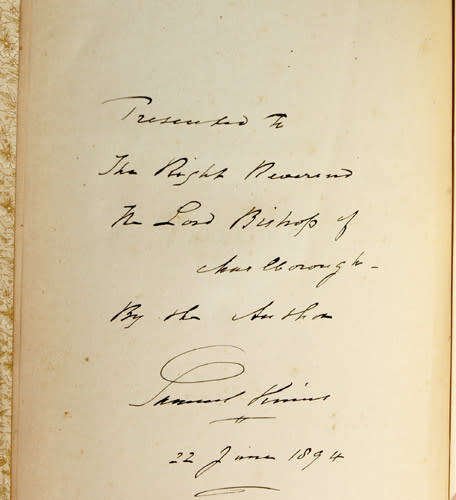 Presented to
The Right Reverend
The Lord Bishop of
Marlborough
By the Author
Samuel Kinns
22 June 1894